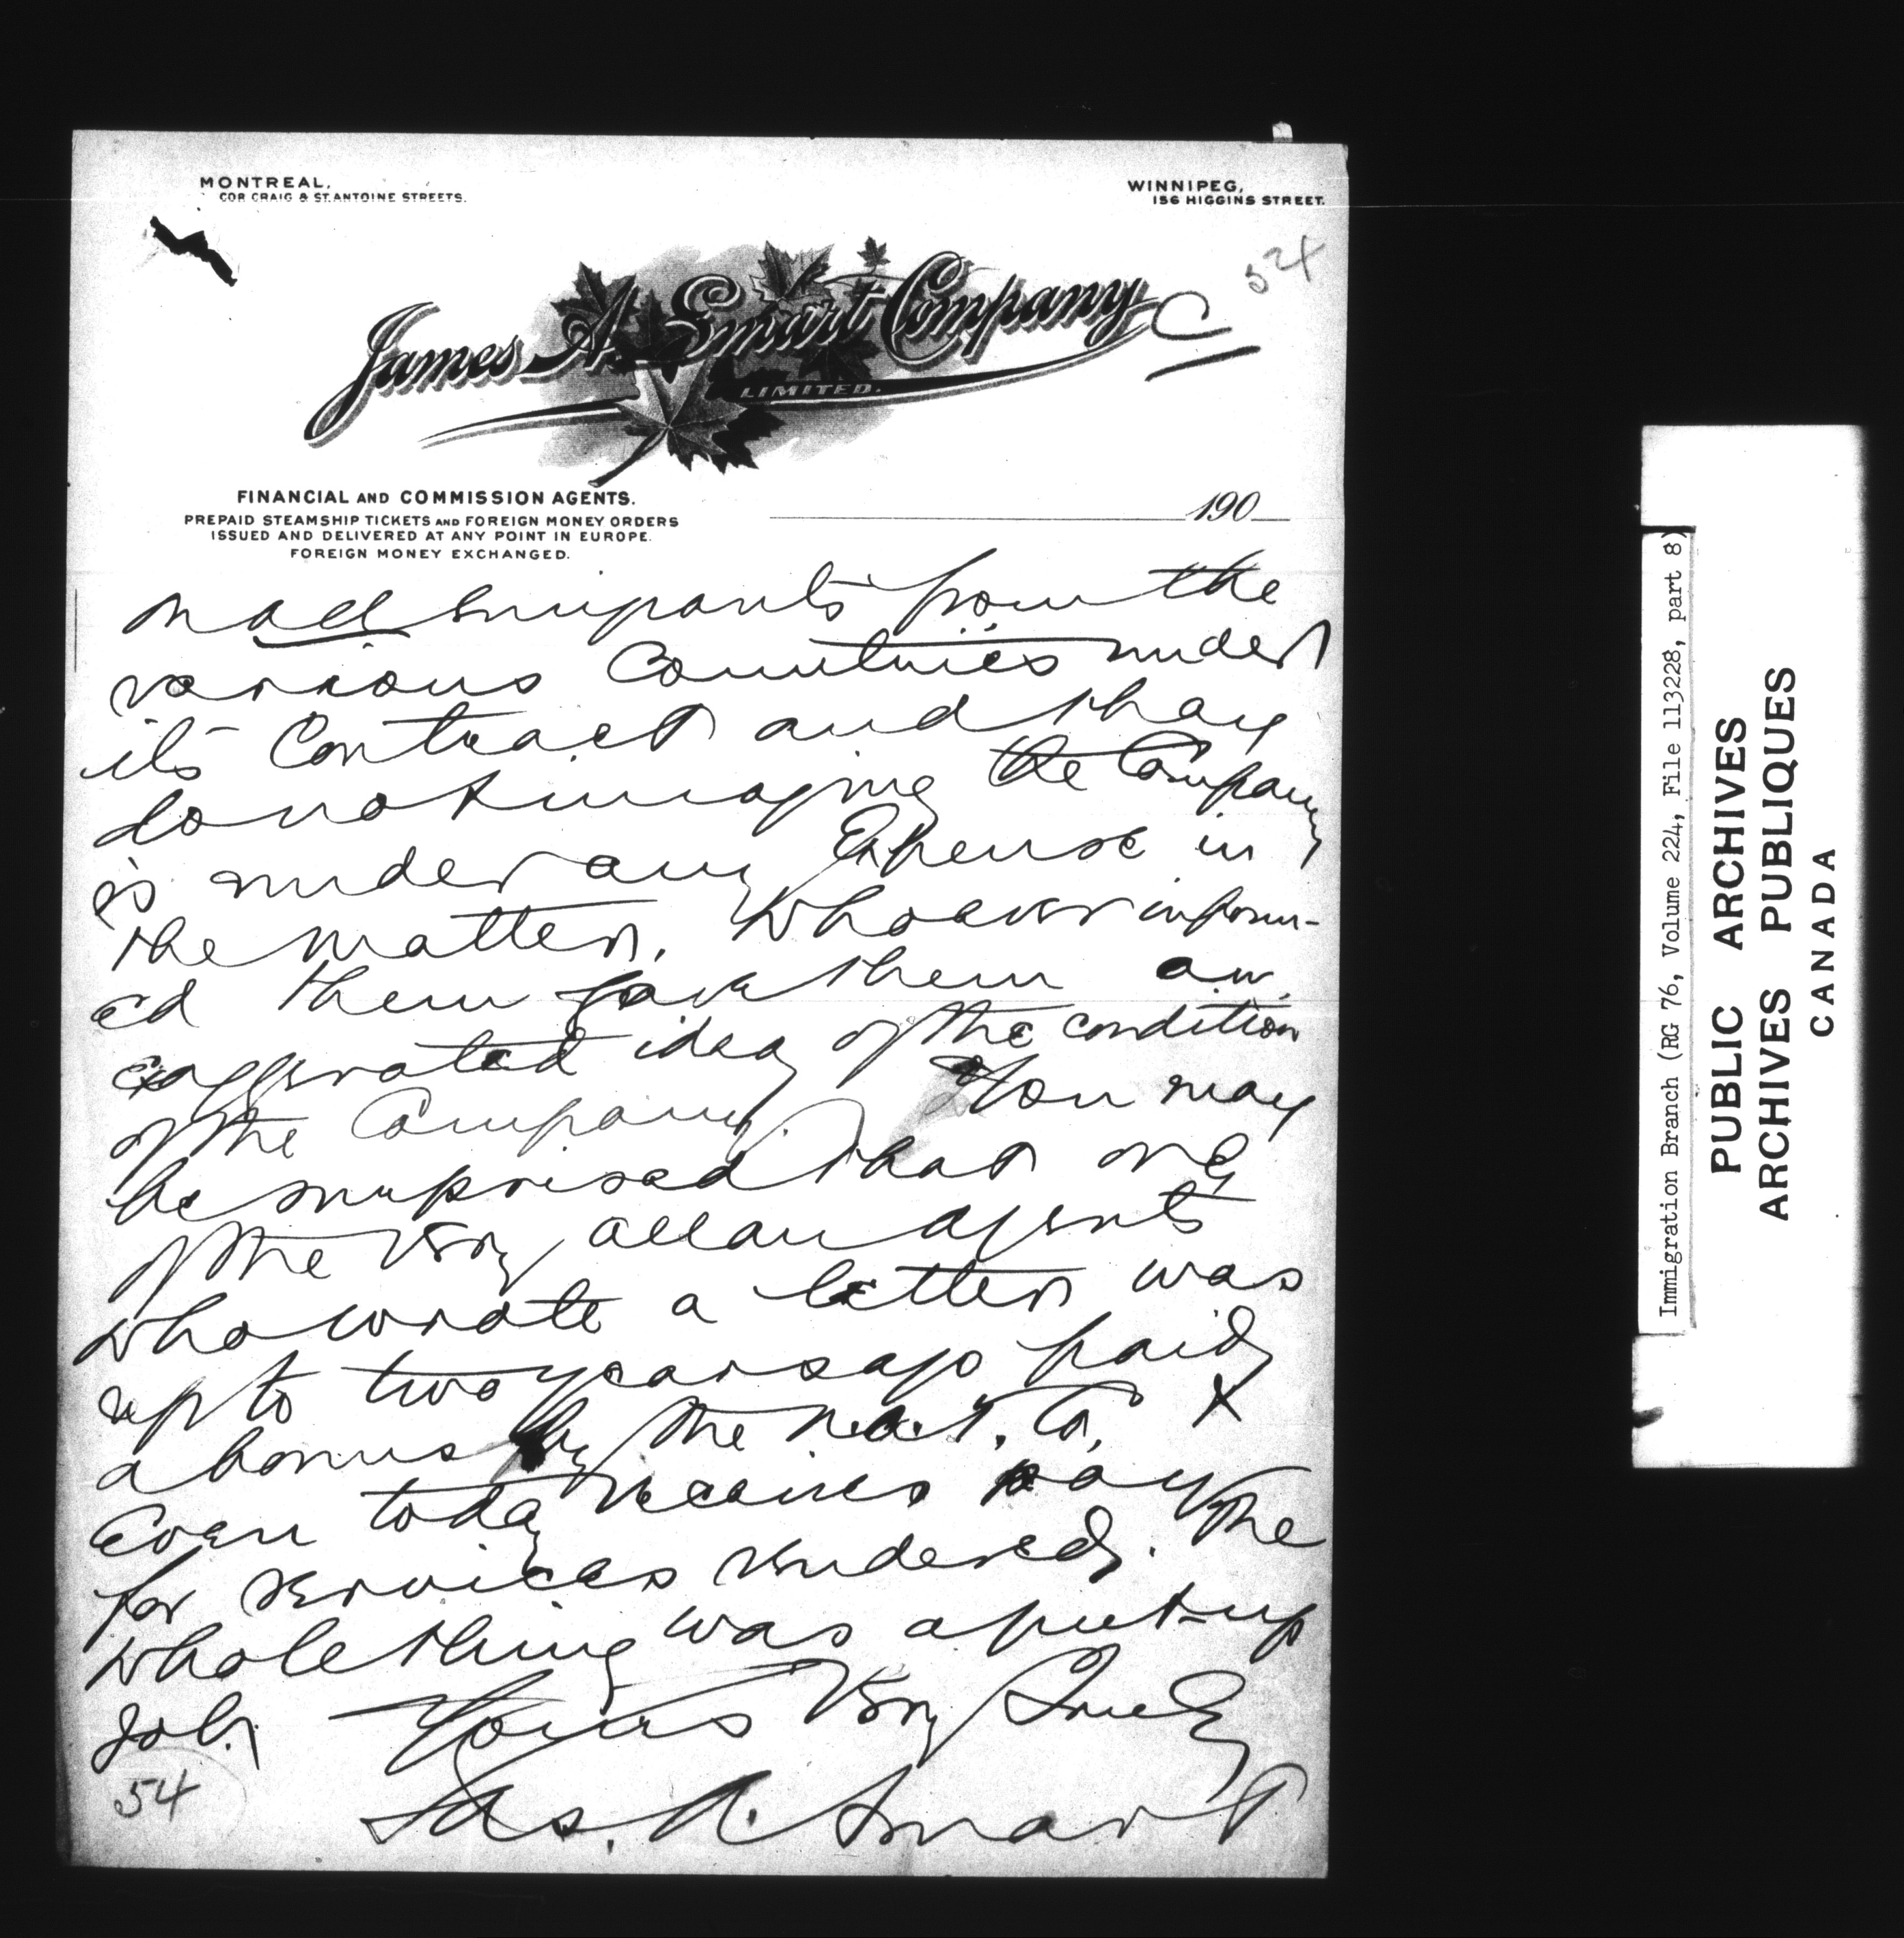 MONTREAL,
COR CRAIG & ST. ANTOINE STREETS.
WINNIPEG,
156 HIGGINS STREET.
524
James A. Smart Company
LIMITED.
C
FINANCIAL AND COMMISSION AGENTS.
PREPAID STEAMSHIP TICKETS AND FOREIGN MONEY ORDERS
ISSUED AND DELIVERED AT ANY POINT IN EUROPE.
FOREIGN MONEY EXCHANGED.
190
on all emigrants from the
various Countries under
its Contract and they
do not imagine the Company
is under any Expense in
the matter. Whoever inform-
ed them gave them an
exaggerated idea of the condition
of the Company. You may
be surprised that one
of the very Allan agents
who wrote a letter was
up to two years ago paid
a bonus by the N.A.T. Co. &
Even today receives pay
for services rendered. The
whole thing was a put-up
job.
Yours Very Truly
Jas. A. Smart
54
Immigration Branch (RG 76, Volume 224, File 113228, part 8)
PUBLIC ARCHIVES
ARCHIVES PUBLIQUES
CANADA